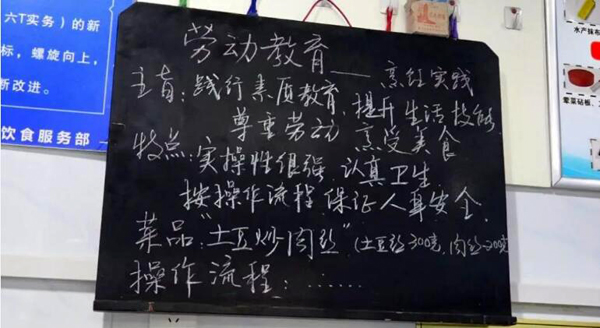 六T实务）的新
标，螺旋向上，
断改进。
饮食服务部
劳动教育——烹饪实践
主旨：践行素质教育，提升生活技能，
尊重劳动 享受美食
特点：实操性很强，认真卫生
按操作流程，保证人身安全，
菜品："土豆炒肉丝"（土豆丝300克，肉丝200克
操作流程：……
水产抹布
荤菜砧板、